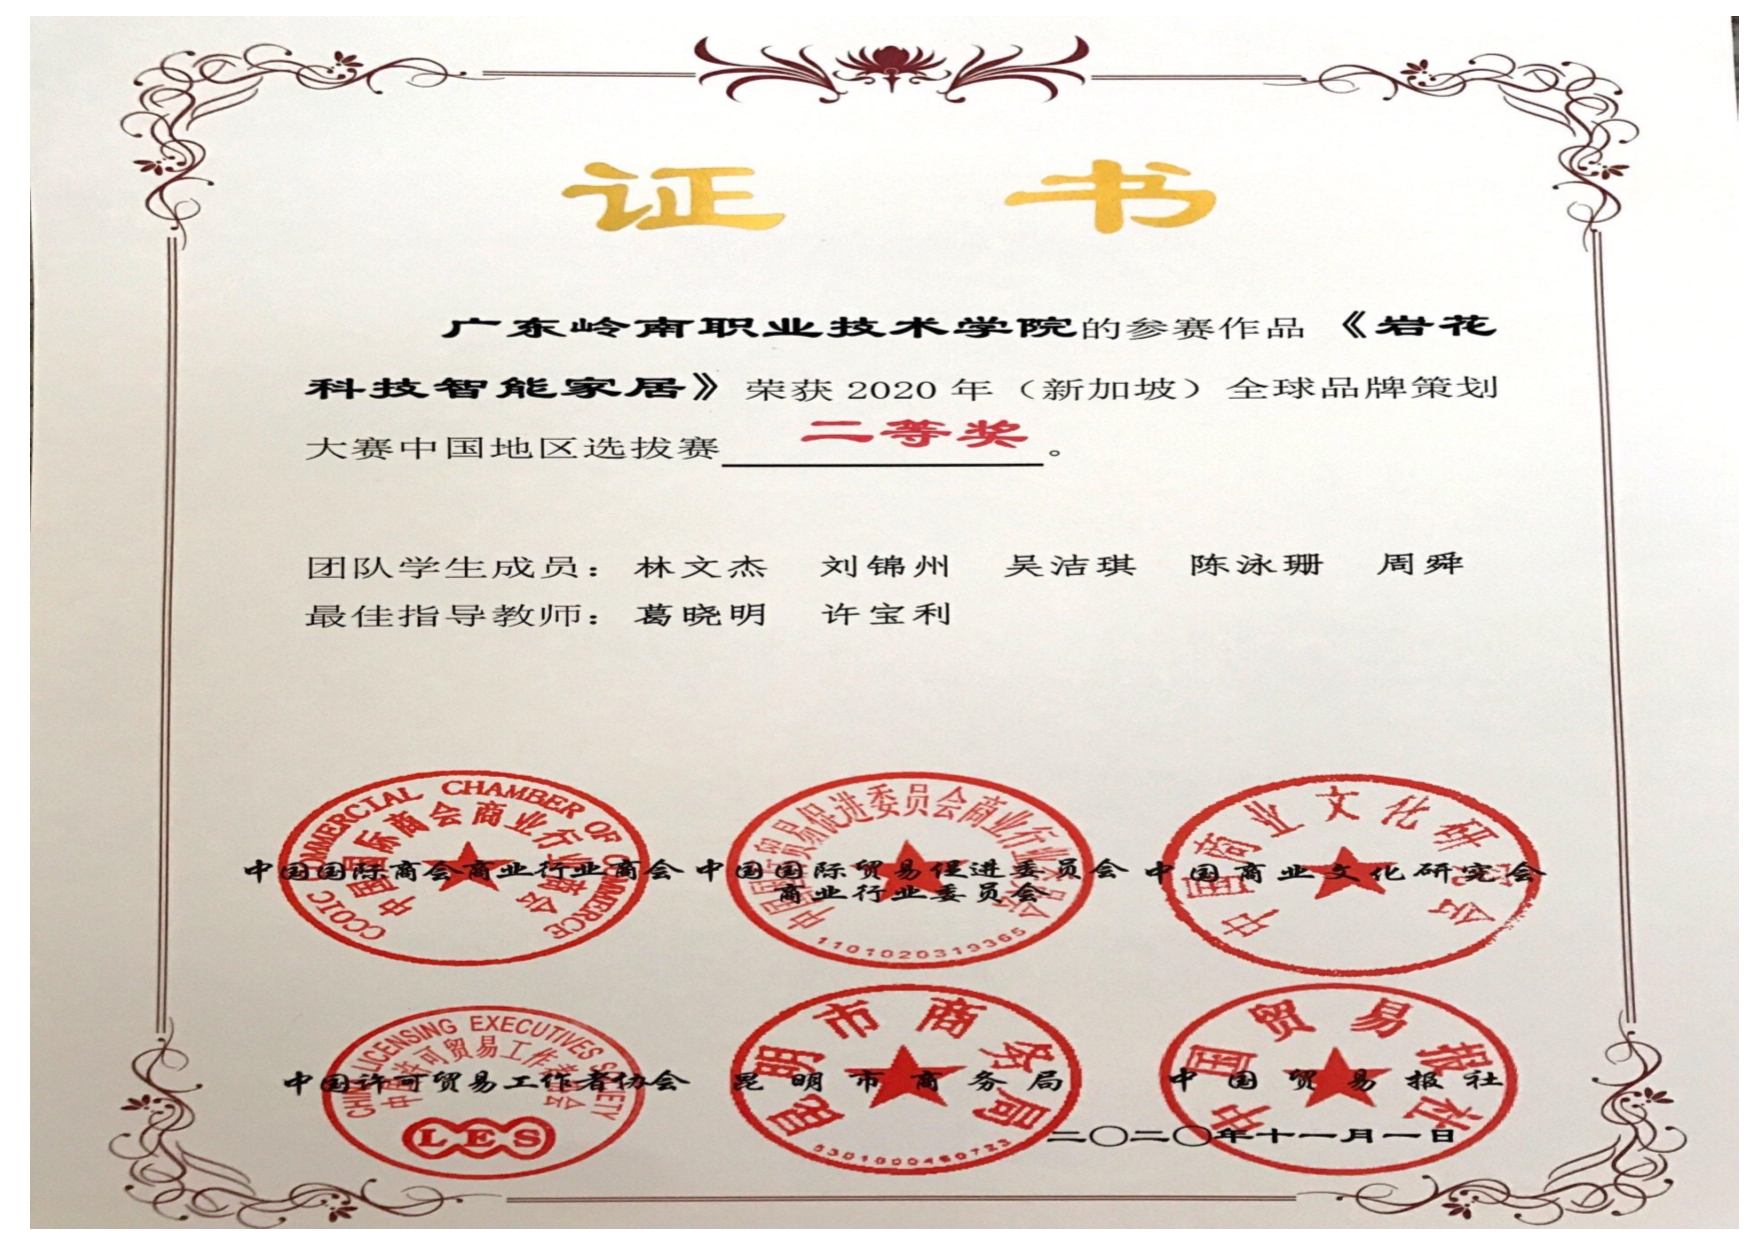 证 书
广东岭南职业技术学院的参赛作品《岩花
科技智能家居》荣获 2020 年（新加坡）全球品牌策划
大赛中国地区选拔赛 二等奖 。
团队学生成员：林文杰 刘锦州 吴洁琪 陈泳珊 周舜
最佳指导教师：葛晓明 许宝利
CCOIC COMMERCIAL CHAMBER OF COMMERCE
中国国际商会商业行业商会
中国国际商会商业行业商会
中国国际贸易促进委员会商业行业委员会
中国国际贸易促进委员会
商业行业委员会
1101020313365
中国商业文化研究会
中国商业文化研究会
CHINA LICENSING EXECUTIVES SOCIETY
中国许可贸易工作者协会
中国许可贸易工作者协会
LES
昆明市商务局
昆明市商务局
中国贸易报社
中国贸易报社
二〇二〇年十一月一日